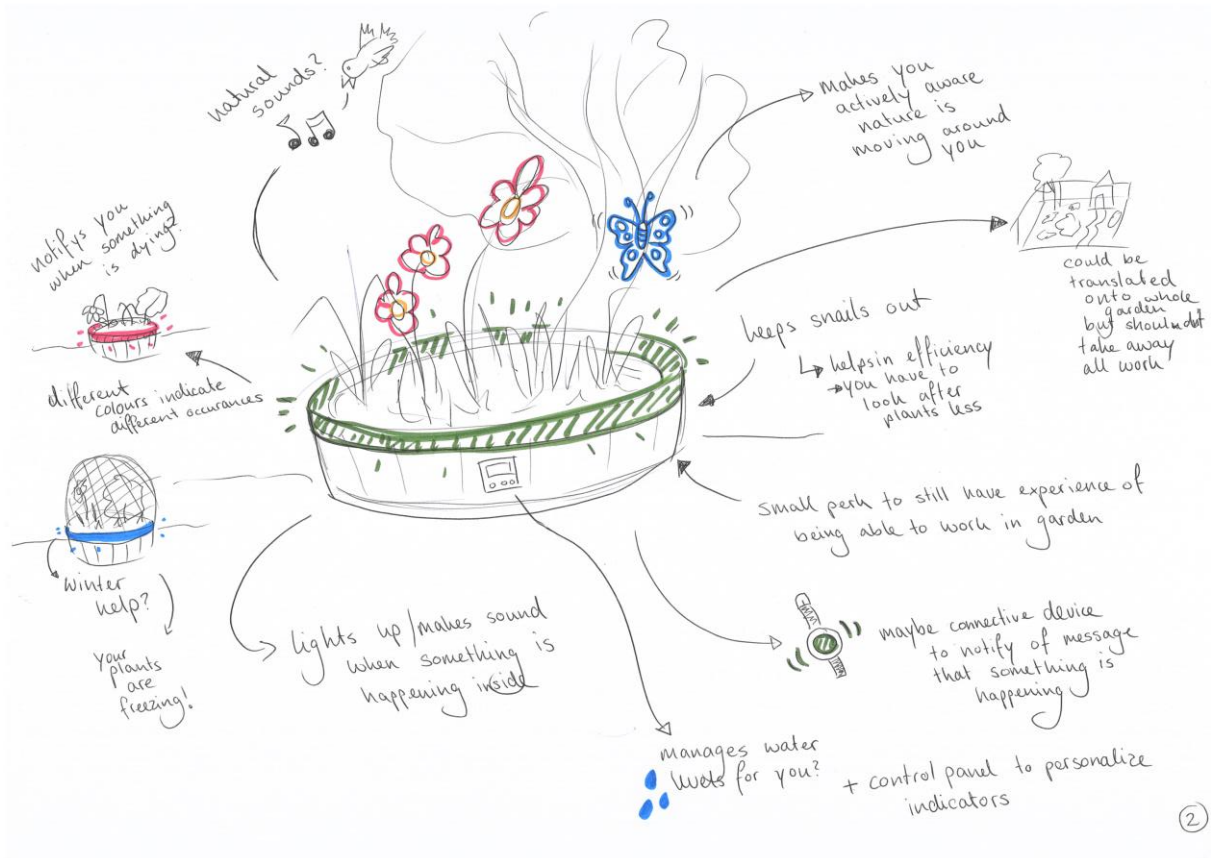 natural
sounds?
makes you
actively aware
nature is
moving around
you
notifys you
when something
is dying?
different
colours indicate
different occurances
could be
translated
onto whole
garden
but should not
take away
all work
keeps snails out
helps in efficiency
you have to
look after
plants less
small perk to still have experience of
being able to work in garden
winter
help?
your
plants
are
freezing!
lights up/makes sound
when something is
happening inside
maybe connective device
to notify of message
that something is
happening
manages water
levels for you?
+ control panel to personalize
indicators
2